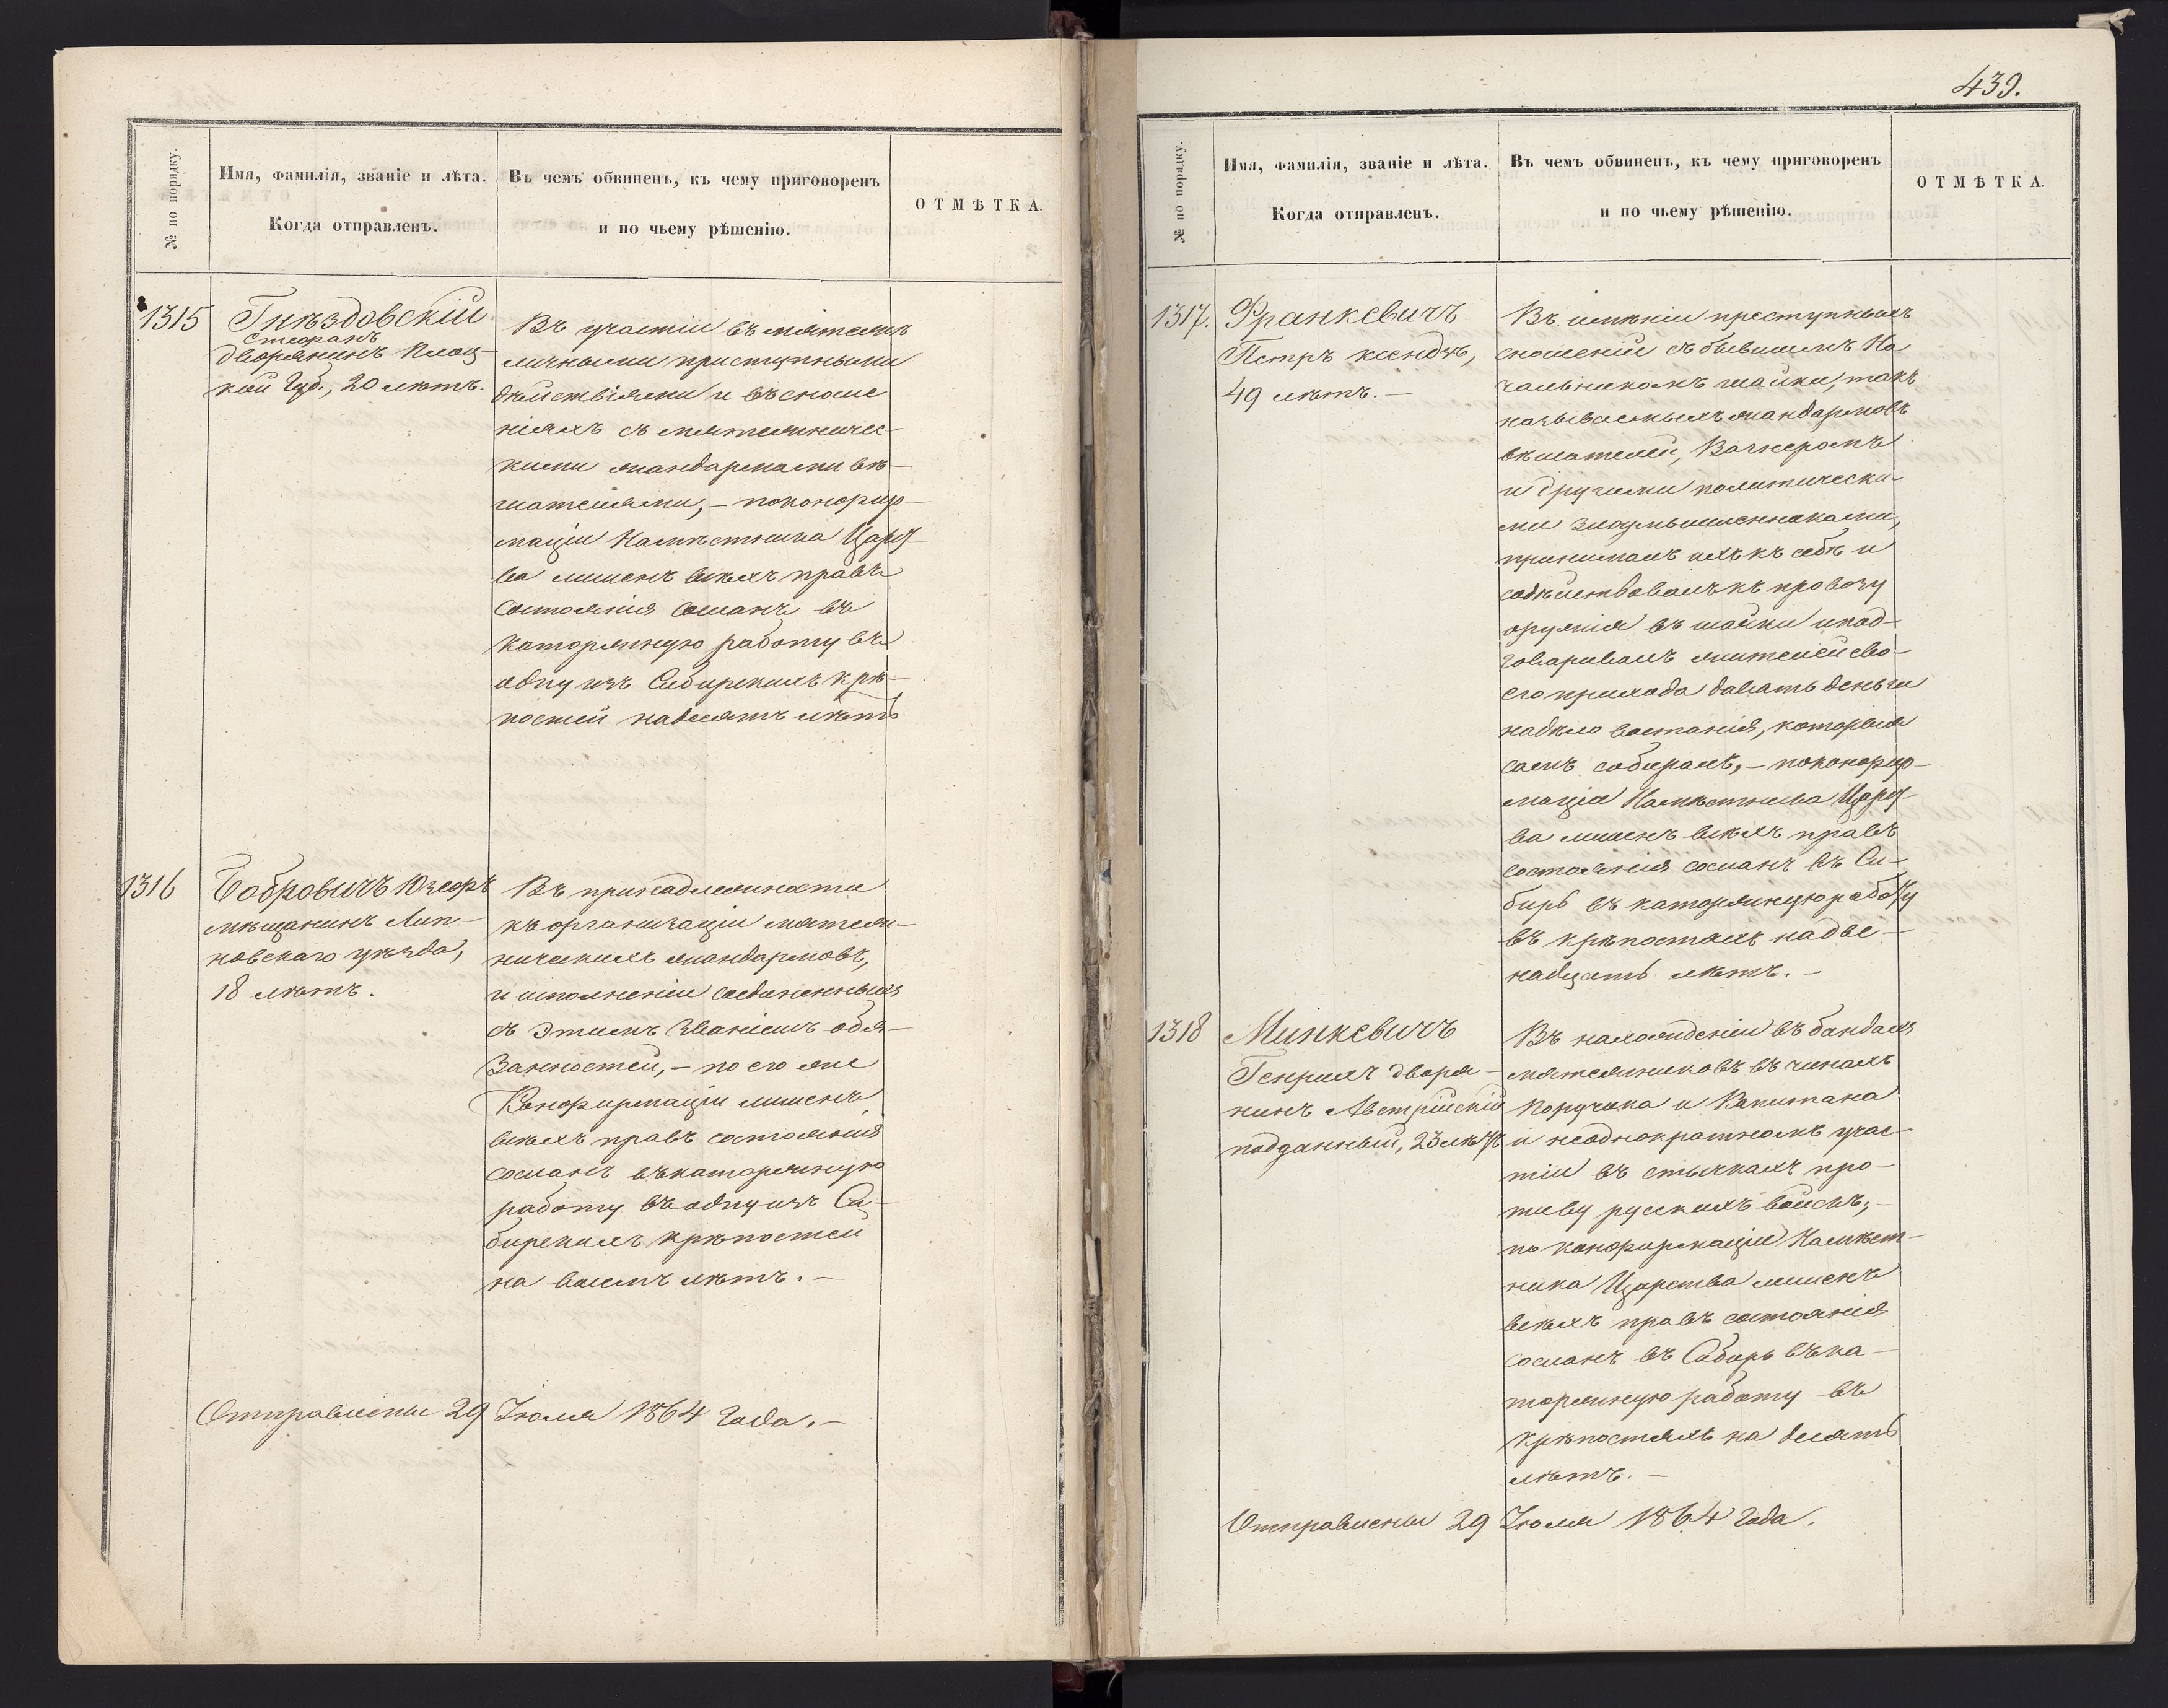 № по порядку.
Имя, фамилія, званіе и лѣта.
Когда отправленъ.
Въ чемъ обвиненъ, къ чему приговоренъ
и по чьему рѣшенію.
ОТМѢТКА.
1315
Гнѣздовскій
Стефанъ
дворянинъ Плоц-
кой Губ., 20 лѣтъ.
Въ участіи въ мятежѣ
личными приступными
дѣйствіями и въ сноше
ніяхъ съ мятежничес-
кими жандармами вѣ-
шателями, - по конфир-
маціи Намѣстника Царст-
ва лишенъ всѣхъ правъ
состоянія сосланъ въ
каторжную работу въ
одну изъ Сибирскихъ крѣ-
постей на десять лѣтъ
1316
Бобровичъ Юзефъ
мѣщанинъ Лип-
новскаго уѣзда,
18 лѣтъ.
Въ принадлежности
къ организаціи мятеж-
ническихъ жандармовъ,
и исполненіи соединенныхъ
съ этимъ званіемъ обя-
занностей, - по его же
Конфирмаціи лишенъ
всѣхъ правъ состоянія
сосланъ въ каторжную
работу въ одну изъ Си-
бирскихъ крѣпостей
на восемь лѣтъ. -
Отправлены 29 Іюля 1864 года. -
439.
№ по порядку.
Имя, фамилія, званіе и лѣта.
Когда отправленъ.
Въ чемъ обвиненъ, къ чему приговоренъ
и по чьему рѣшенію.
ОТМѢТКА.
1317.
Франкевичъ
Петръ ксендзъ,
49 лѣтъ. -
Въ имѣніи преступныхъ
сношеній съ бывшимъ На
чальникомъ шайки, такъ
называемыхъ жандармовъ
вѣшателей, Вагнеромъ
и другими политически-
ми злоумышленниками,
принималъ ихъ къ себѣ и
содѣйствовалъ къ провозу
оружія въ шайки и под-
говаривалъ жителей сво-
его прихода давать деньги
на дѣло востанія, которыя
самъ собиралъ, - по конфир-
маціи Намѣстника Царст-
ва лишенъ всѣхъ правъ
состоянія сосланъ въ Си-
бирь въ каторжную работу
въ крѣпостяхъ на две-
надцать лѣтъ. -
1318
Минкевичъ
Генрихъ дворя-
нинъ Австрійскій
подданный, 23 лѣтъ
Въ нахожденіи въ бандахъ
мятежниковъ въ чинахъ
Поручика и Капитана
и неоднократномъ учас-
тіи въ стычкахъ про-
тиву русскихъ войскъ, -
по конфирмаціи Намѣст-
ника Царства лишенъ
всѣхъ правъ состоянія
сосланъ въ Сибирь въ ка-
торжную работу въ
крѣпостяхъ на десять
лѣтъ. -
Отправлены 29 Іюля 1864 года.